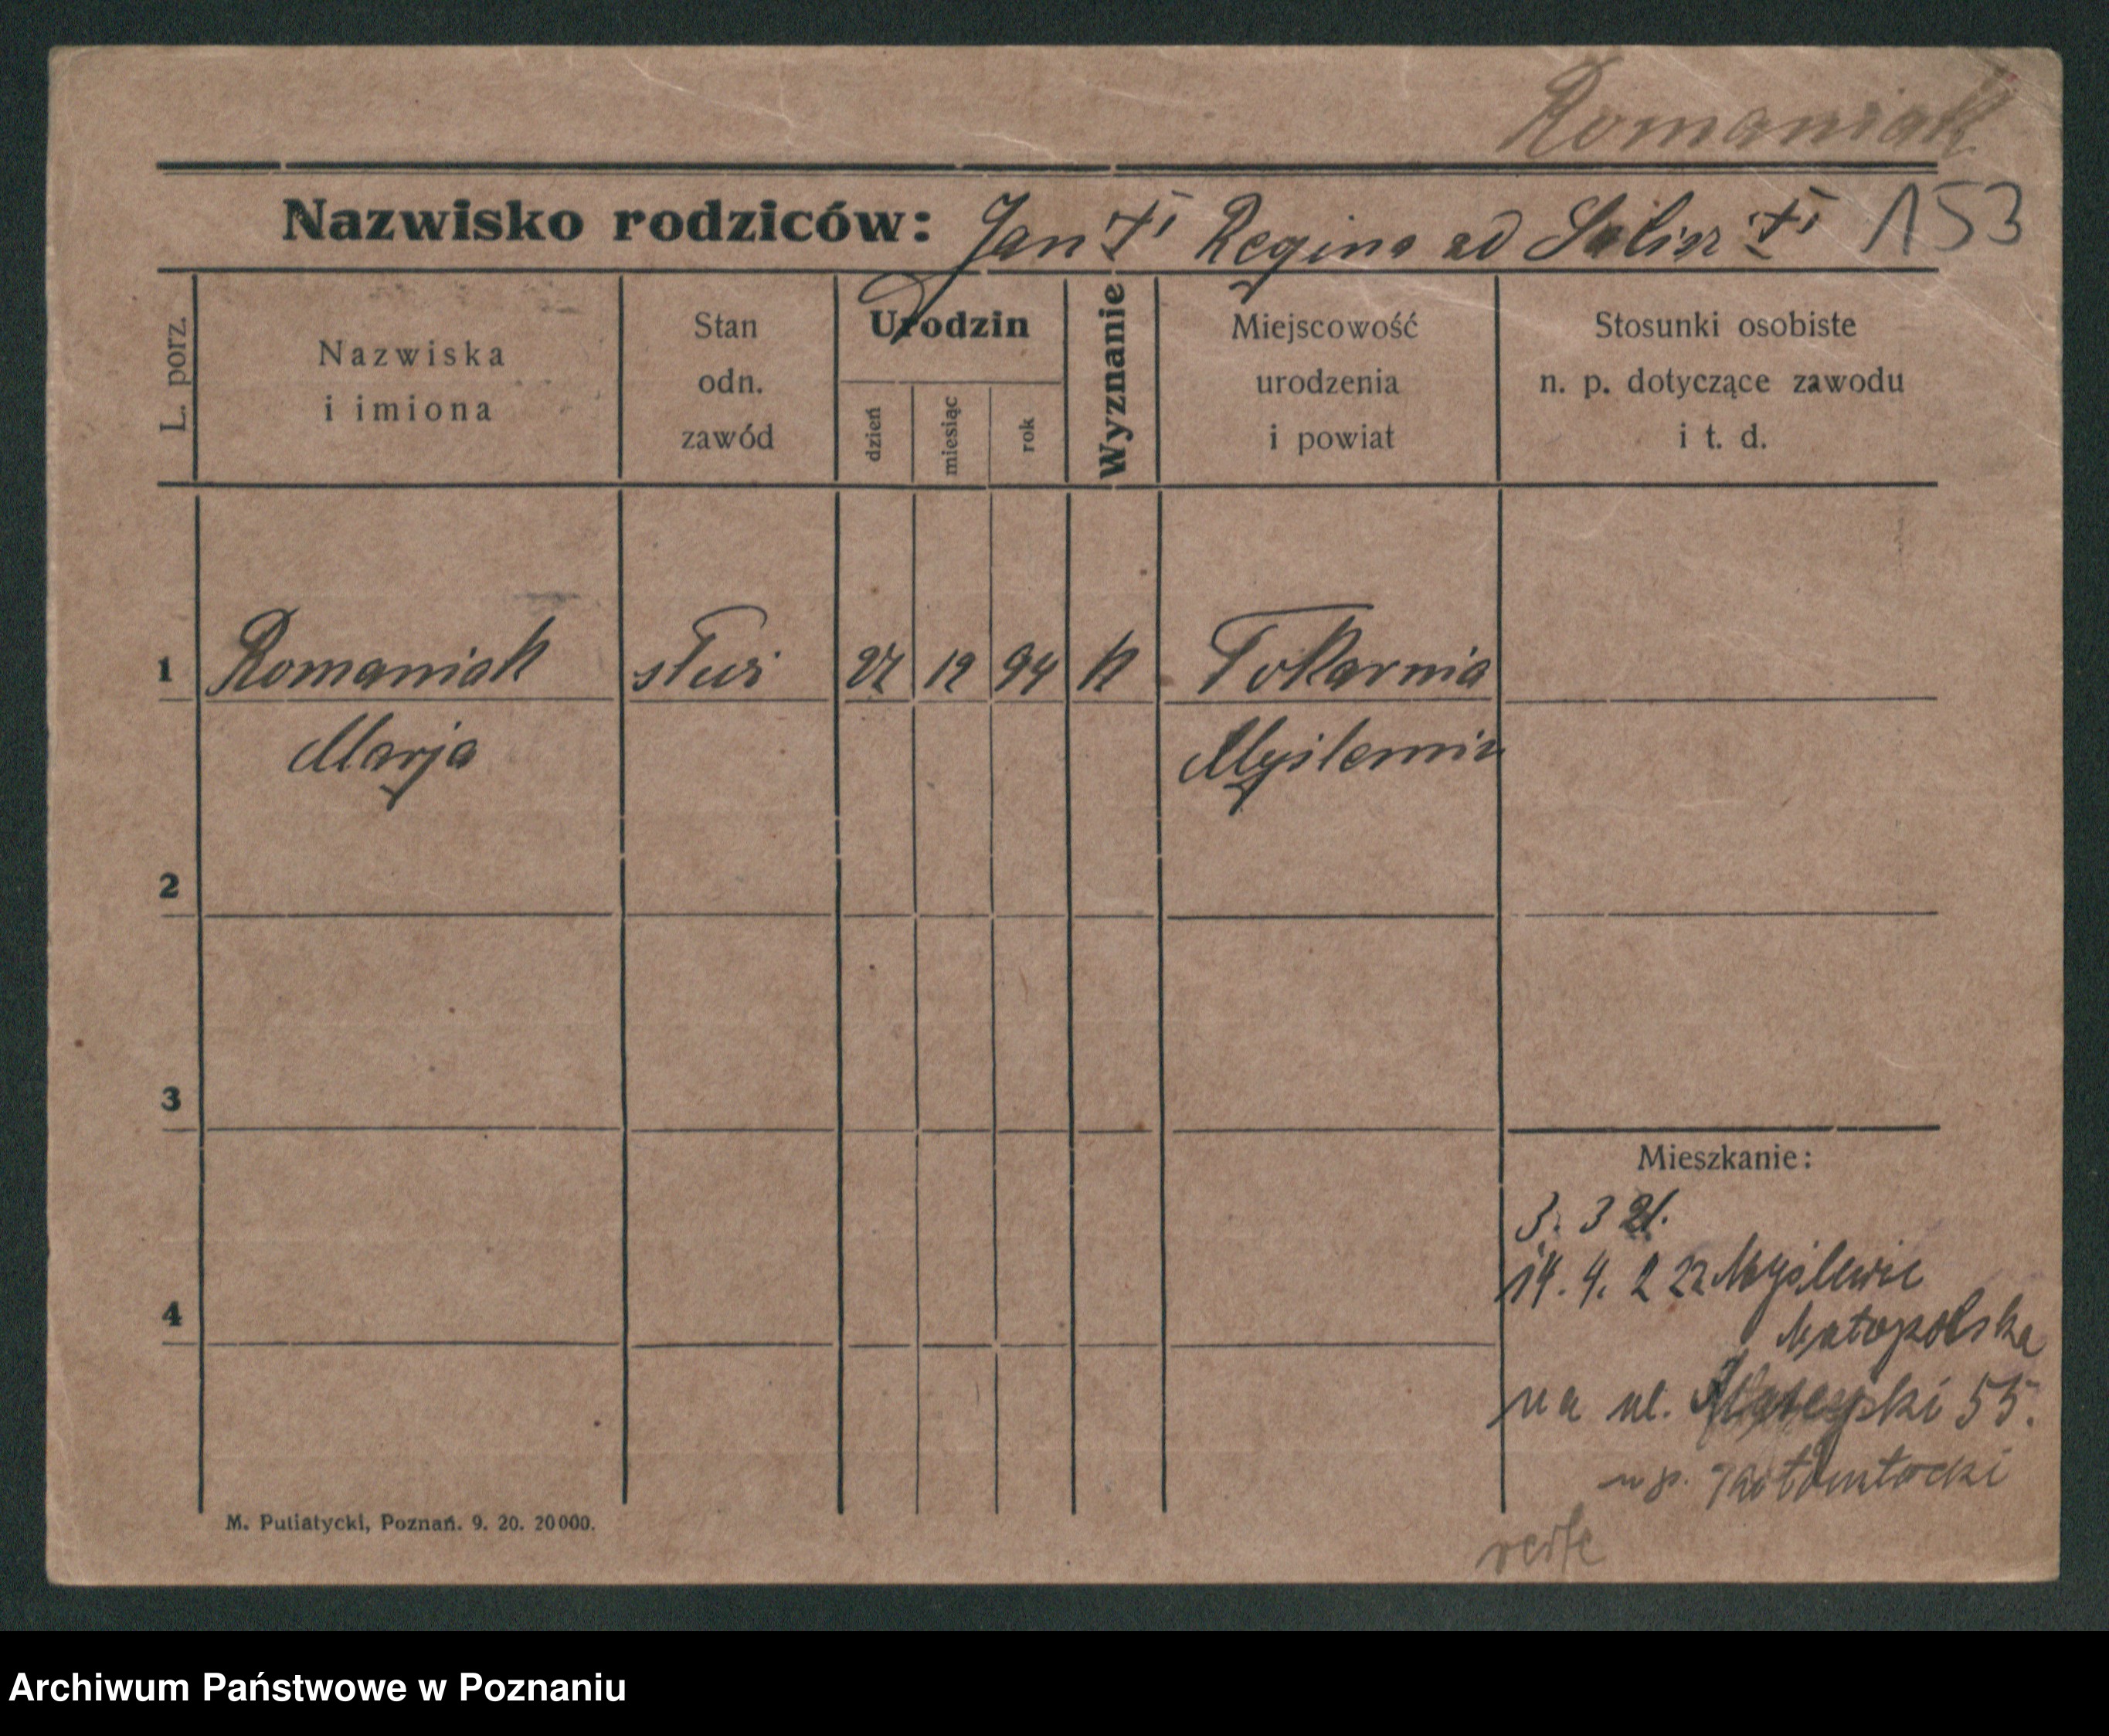 Romaniak
Nazwisko rodziców: Jan Regina 153
L. porz.
Nazwiska
i imiona
Stan
odn.
zawód
Urodzin
dzień
miesiąc
rok
Wyznanie
Miejscowość
urodzenia
i powiat
Stosunki osobiste
n. p. dotyczące zawodu
i t. d.
1 Romaniak 27 12 94 k Tokarnia
Marja
2
3
Mieszkanie:
3. 3 21.
14. 4. 22
4
Małopolska
na ul. 55.
M. Putiatycki, Poznań. 9. 20. 20000.
Archiwum Państwowe w Poznaniu